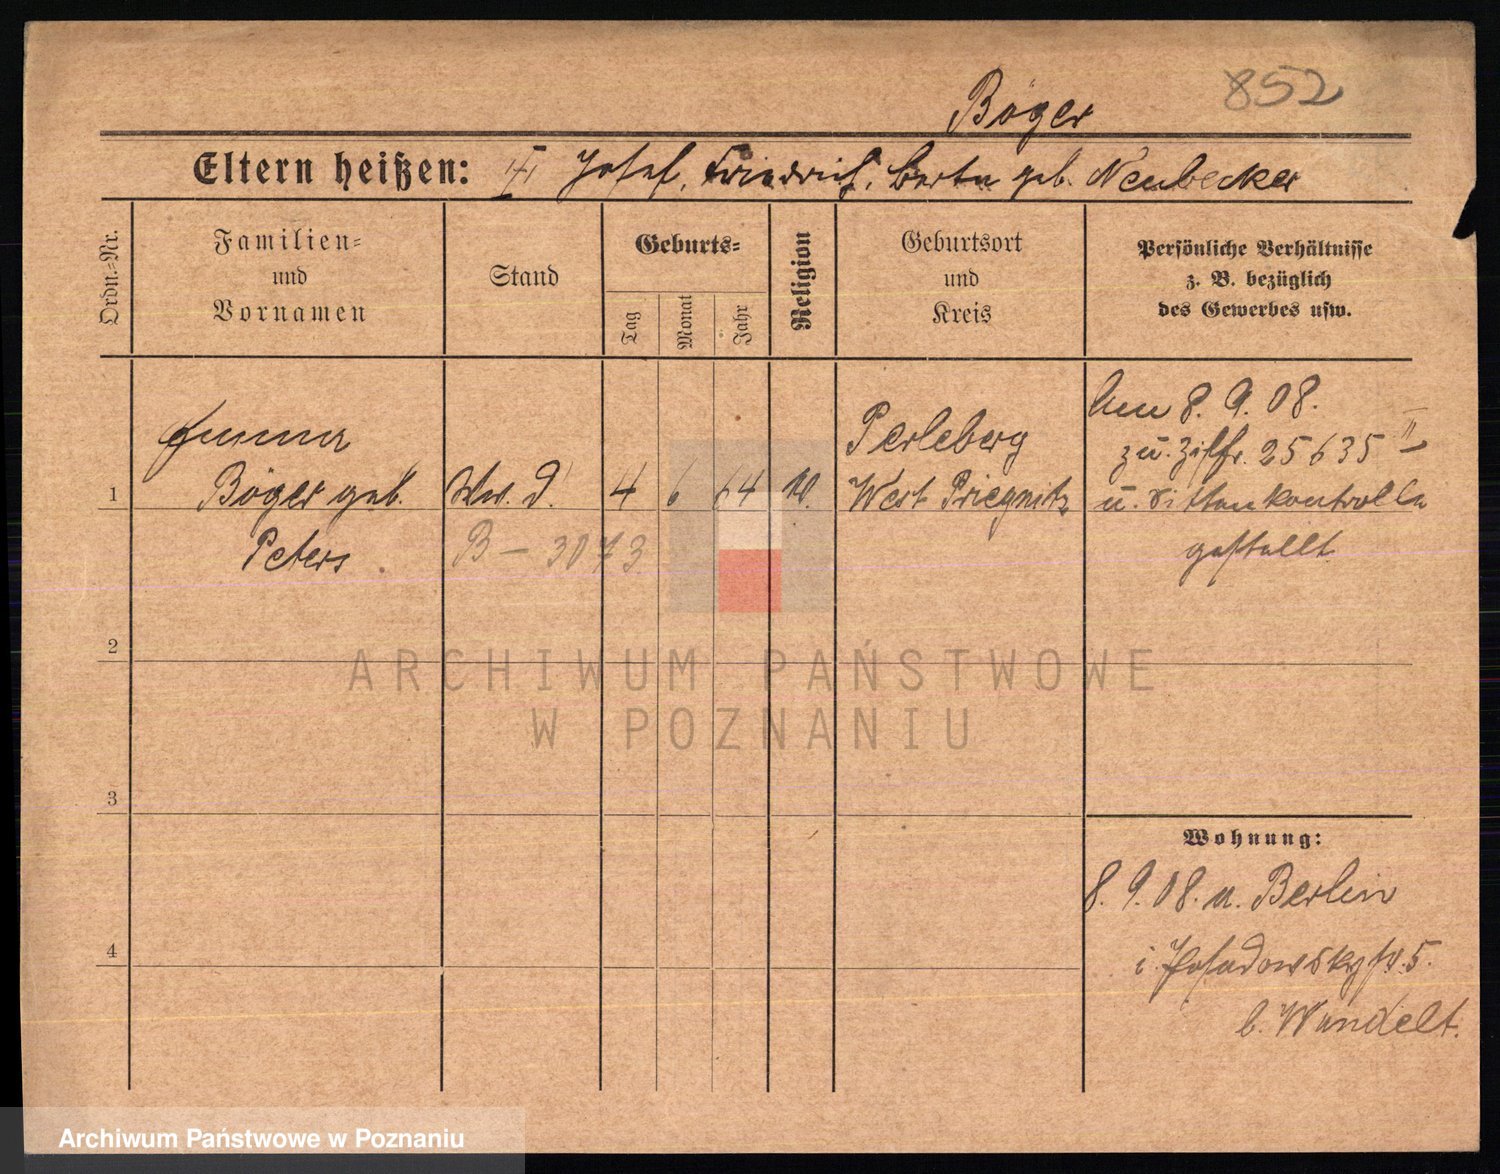 852
Böger
Eltern heißen: Josef, Friedrich, Berta geb. Neubecker
Ordn.-Nr.
Familien-
und
Vornamen
Stand
Geburts-
Tag
Monat
Jahr
Religion
Geburtsort
und
Kreis
Persönliche Verhältnisse
z. B. bezüglich
des Gewerbes usw.
1
Emma
Böger geb.
Peters
Ww.
B – 3073
4 6 64
Perleberg
West Priegnitz
Am 8. 9. 08.
zu. Ziffr. 25635 II
u. Sittenkontrolle
gestellt
2
3
4
Wohnung:
8. 9. 08. a. Berlin
i. Posadowskystr. 5.
b. Wandelt.
ARCHIWUM PAŃSTWOWE
W POZNANIU
Archiwum Państwowe w Poznaniu